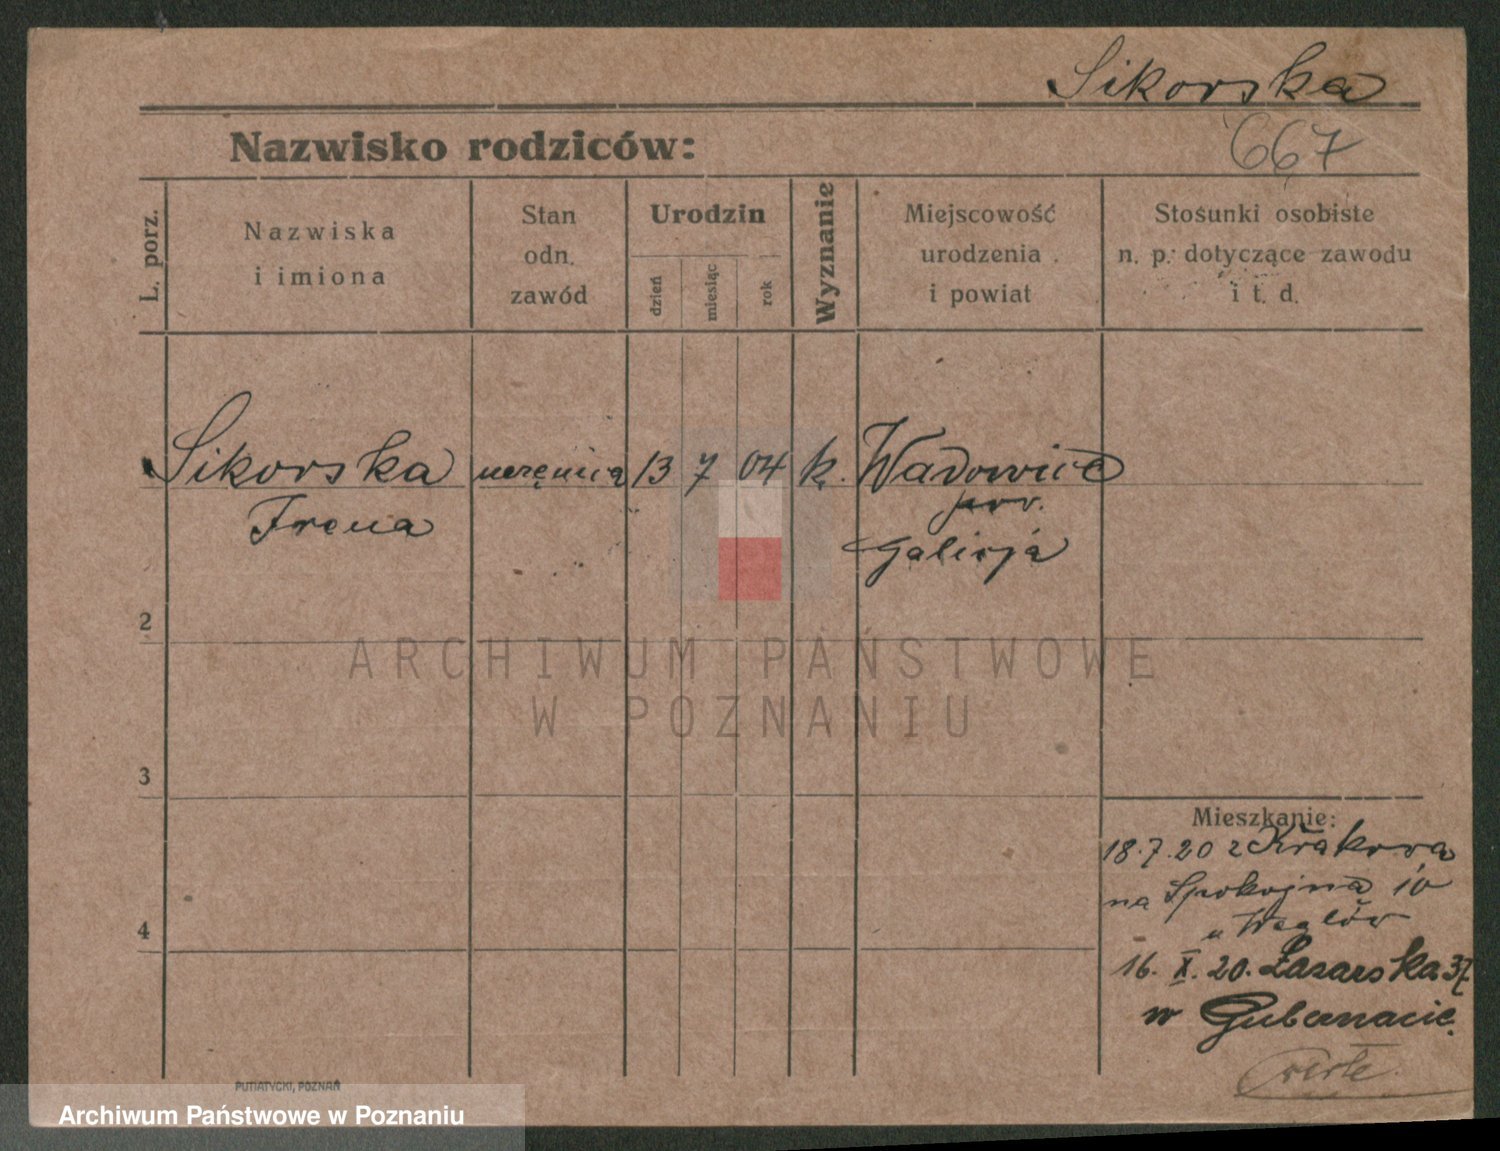 Sikorska
667
Nazwisko rodziców:
L. porz.
Nazwiska
i imiona
Stan
odn.
zawód
Urodzin
dzień
miesiąc
rok
Wyznanie
Miejscowość
urodzenia
i powiat
Stosunki osobiste
n. p. dotyczące zawodu
i t. d.
Sikorska uczęnica 13 7 04 k. Wadowice
Irena
pow.
Galicja
2
ARCHIWUM PAŃSTWOWE
W POZNANIU
3
Mieszkanie:
18.7.20 z Krakowa
na Spokojna 10
u
4
16. X. 20. Łazarska 37
w
verte.
PUTIATYCKI, POZNAŃ
Archiwum Państwowe w Poznaniu